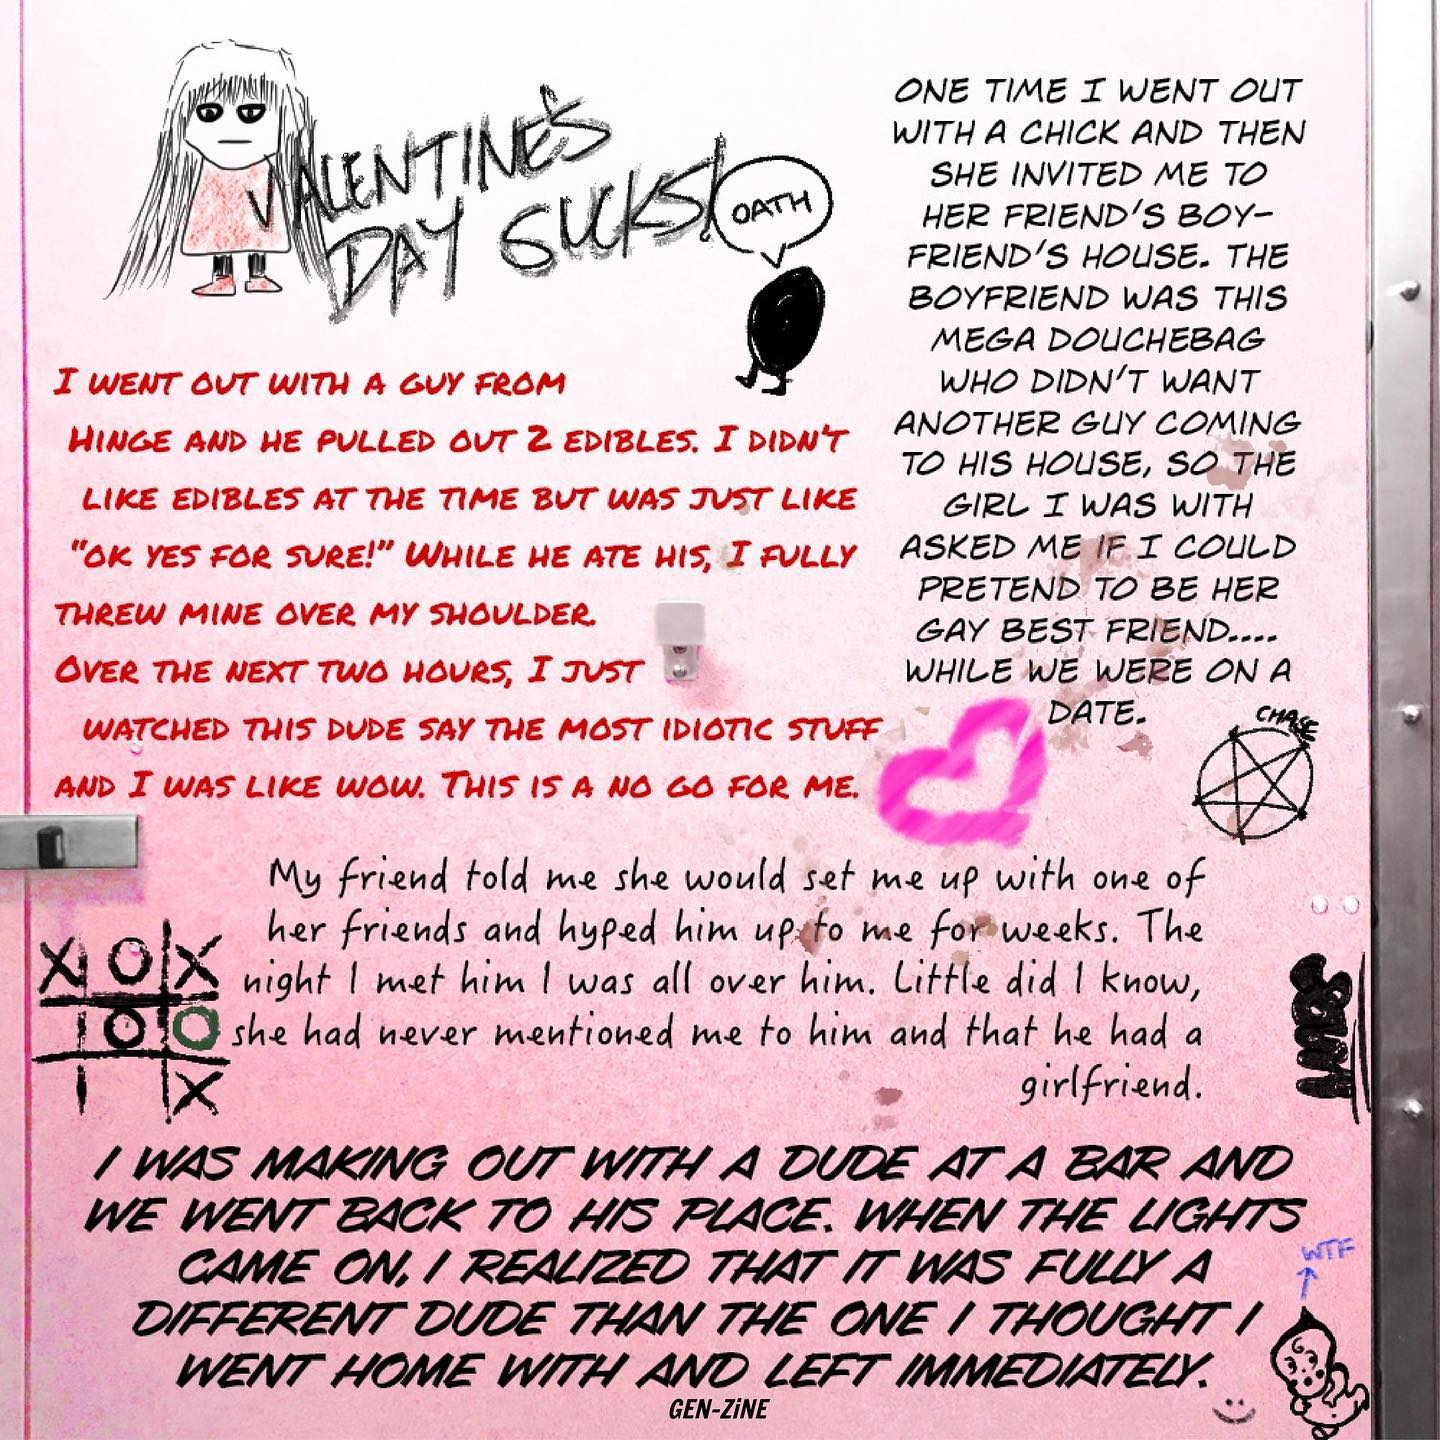 VALENTINE'S
DAY SUCKS!
OATH
I WENT OUT WITH A GUY FROM
HINGE AND HE PULLED OUT 2 EDIBLES. I DIDN'T
LIKE EDIBLES AT THE TIME BUT WAS JUST LIKE
"OK YES FOR SURE!" WHILE HE ATE HIS, I FULLY
THREW MINE OVER MY SHOULDER.
OVER THE NEXT TWO HOURS, I JUST
WATCHED THIS DUDE SAY THE MOST IDIOTIC STUFF
AND I WAS LIKE WOW. THIS IS A NO GO FOR ME.
ONE TIME I WENT OUT
WITH A CHICK AND THEN
SHE INVITED ME TO
HER FRIEND'S BOY-
FRIEND'S HOUSE. THE
BOYFRIEND WAS THIS
MEGA DOUCHEBAG
WHO DIDN'T WANT
ANOTHER GUY COMING
TO HIS HOUSE, SO THE
GIRL I WAS WITH
ASKED ME IF I COULD
PRETEND TO BE HER
GAY BEST FRIEND....
WHILE WE WERE ON A
DATE.
CHASE
My friend told me she would set me up with one of
her friends and hyped him up to me for weeks. The
night I met him I was all over him. Little did I know,
she had never mentioned me to him and that he had a
girlfriend.
X O X
O O
X
I WAS MAKING OUT WITH A DUDE AT A BAR AND
WE WENT BACK TO HIS PLACE. WHEN THE LIGHTS
CAME ON, I REALIZED THAT IT WAS FULLY A
DIFFERENT DUDE THAN THE ONE I THOUGHT I
WENT HOME WITH AND LEFT IMMEDIATELY.
WTF
GEN-ZiNE